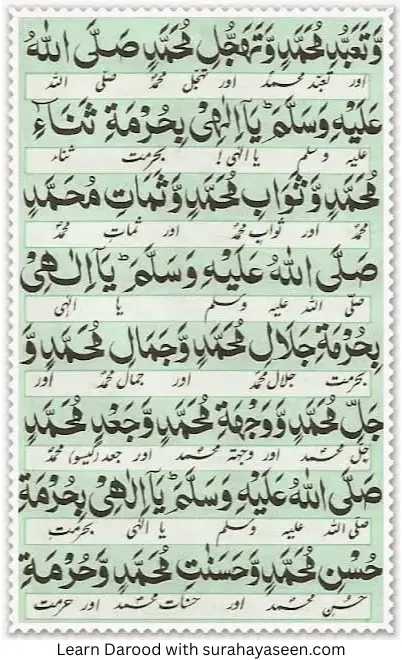 وَّتَعَبُّدِ مُحَمَّدٍ وَّتَهَجُّلِ مُحَمَّدٍ صَلَّى اللهُ
اور تعبّد محمدؐ اور تہجل محمدؐ صلی اللہ
عَلَيْهِ وَسَلَّمَ ؕ يَآ اِلٰهِيْ بِحُرْمَةِ ثَنَآءِ
علیہ وسلم یا الٰہی! بحرمت ثناء
مُحَمَّدٍ وَّثَوَابِ مُحَمَّدٍ وَّثَمَاتِ مُحَمَّدٍ
محمدؐ اور ثواب محمدؐ اور ثمات محمدؐ
صَلَّى اللهُ عَلَيْهِ وَسَلَّمَ ؕ يَآ اِلٰهِيْ
صلی اللہ علیہ وسلم یا الٰہی
بِحُرْمَةِ جَلَالِ مُحَمَّدٍ وَّجَمَالِ مُحَمَّدٍ وَّ
بحرمت جلال محمدؐ اور جمال محمدؐ اور
جَلِّ مُحَمَّدٍ وَّوَجْهَةِ مُحَمَّدٍ وَّجَعْدِ مُحَمَّدٍ
جل محمدؐ اور وجہتہ محمدؐ اور جعد (گیسو) محمدؐ
صَلَّى اللهُ عَلَيْهِ وَسَلَّمَ ؕ يَآ اِلٰهِيْ بِحُرْمَةِ
صلی اللہ علیہ وسلم یا الٰہی بحرمت
حُسْنِ مُحَمَّدٍ وَّحَسَنٰتِ مُحَمَّدٍ وَّحُرْمَةِ
حسن محمدؐ اور حسنات محمدؐ اور حرمت
Learn Darood with surahayaseen.com